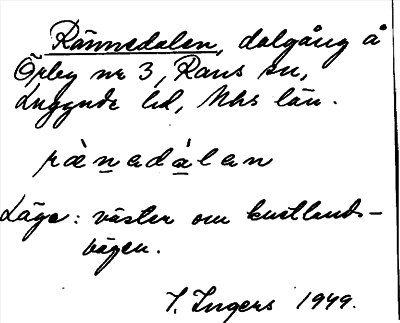 Rännedalen, dalgång å
Örby nr 3, Raus sn,
Luggude hd, Mhs län.
rànadàlan
Läge: väster om kustlands-
vägen.
I. Ingers 1949.